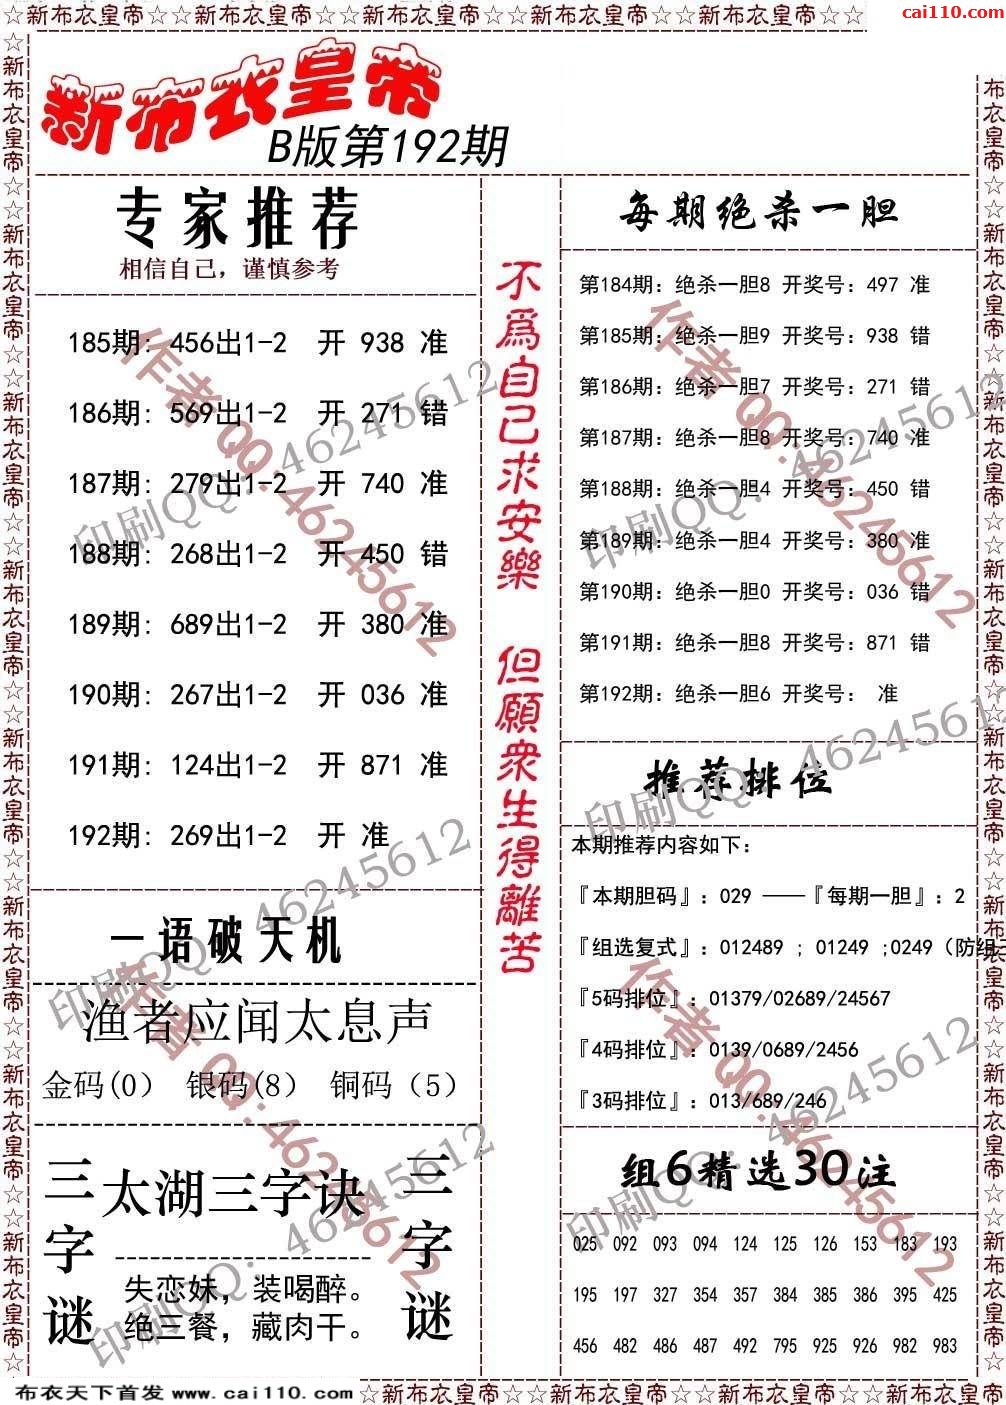 ☆新布衣皇帝☆☆新布衣皇帝☆☆新布衣皇帝☆☆新布衣皇帝☆☆新布衣皇帝☆
cai110.com
新布衣皇帝
B版第192期
专家推荐
相信自己，谨慎参考
185期: 456出1-2 开 938 准
186期: 569出1-2 开 271 错
187期: 279出1-2 开 740 准
188期: 268出1-2 开 450 错
189期: 689出1-2 开 380 准
190期: 267出1-2 开 036 准
191期: 124出1-2 开 871 准
192期: 269出1-2 开 准
一语破天机
渔者应闻太息声
金码(0） 银码(8） 铜码（5）
三字谜
太湖三字诀
失恋妹，装喝醉。
绝三餐，藏肉干。
三字谜
不爲自己求安樂 但願衆生得離苦
每期绝杀一胆
第184期：绝杀一胆8 开奖号：497 准
第185期：绝杀一胆9 开奖号：938 错
第186期：绝杀一胆7 开奖号：271 错
第187期：绝杀一胆8 开奖号：740 准
第188期：绝杀一胆4 开奖号：450 错
第189期：绝杀一胆4 开奖号：380 准
第190期：绝杀一胆0 开奖号：036 错
第191期：绝杀一胆8 开奖号：871 错
第192期：绝杀一胆6 开奖号： 准
推荐排位
本期推荐内容如下：
『本期胆码』：029 ——『每期一胆』：2
『组选复式』：012489 ; 01249 ;0249（防组三
『5码排位』：01379/02689/24567
『4码排位』：0139/0689/2456
『3码排位』：013/689/246
组6精选30注
025 092 093 094 124 125 126 153 183 193
195 197 327 354 357 384 385 386 395 425
456 482 486 487 492 795 925 926 982 983
作者QQ:46245612
印刷QQ:46245612
作者QQ:46245612
印刷QQ:46245612
印刷QQ:46245612
印刷QQ:46245612
作者QQ:46245612
作者QQ:46245612
印刷QQ:46245612
印刷QQ:46245612
布衣天下首发 www.cai110.com
☆新布衣皇帝☆☆新布衣皇帝☆☆新布衣皇帝☆☆新布衣皇帝☆